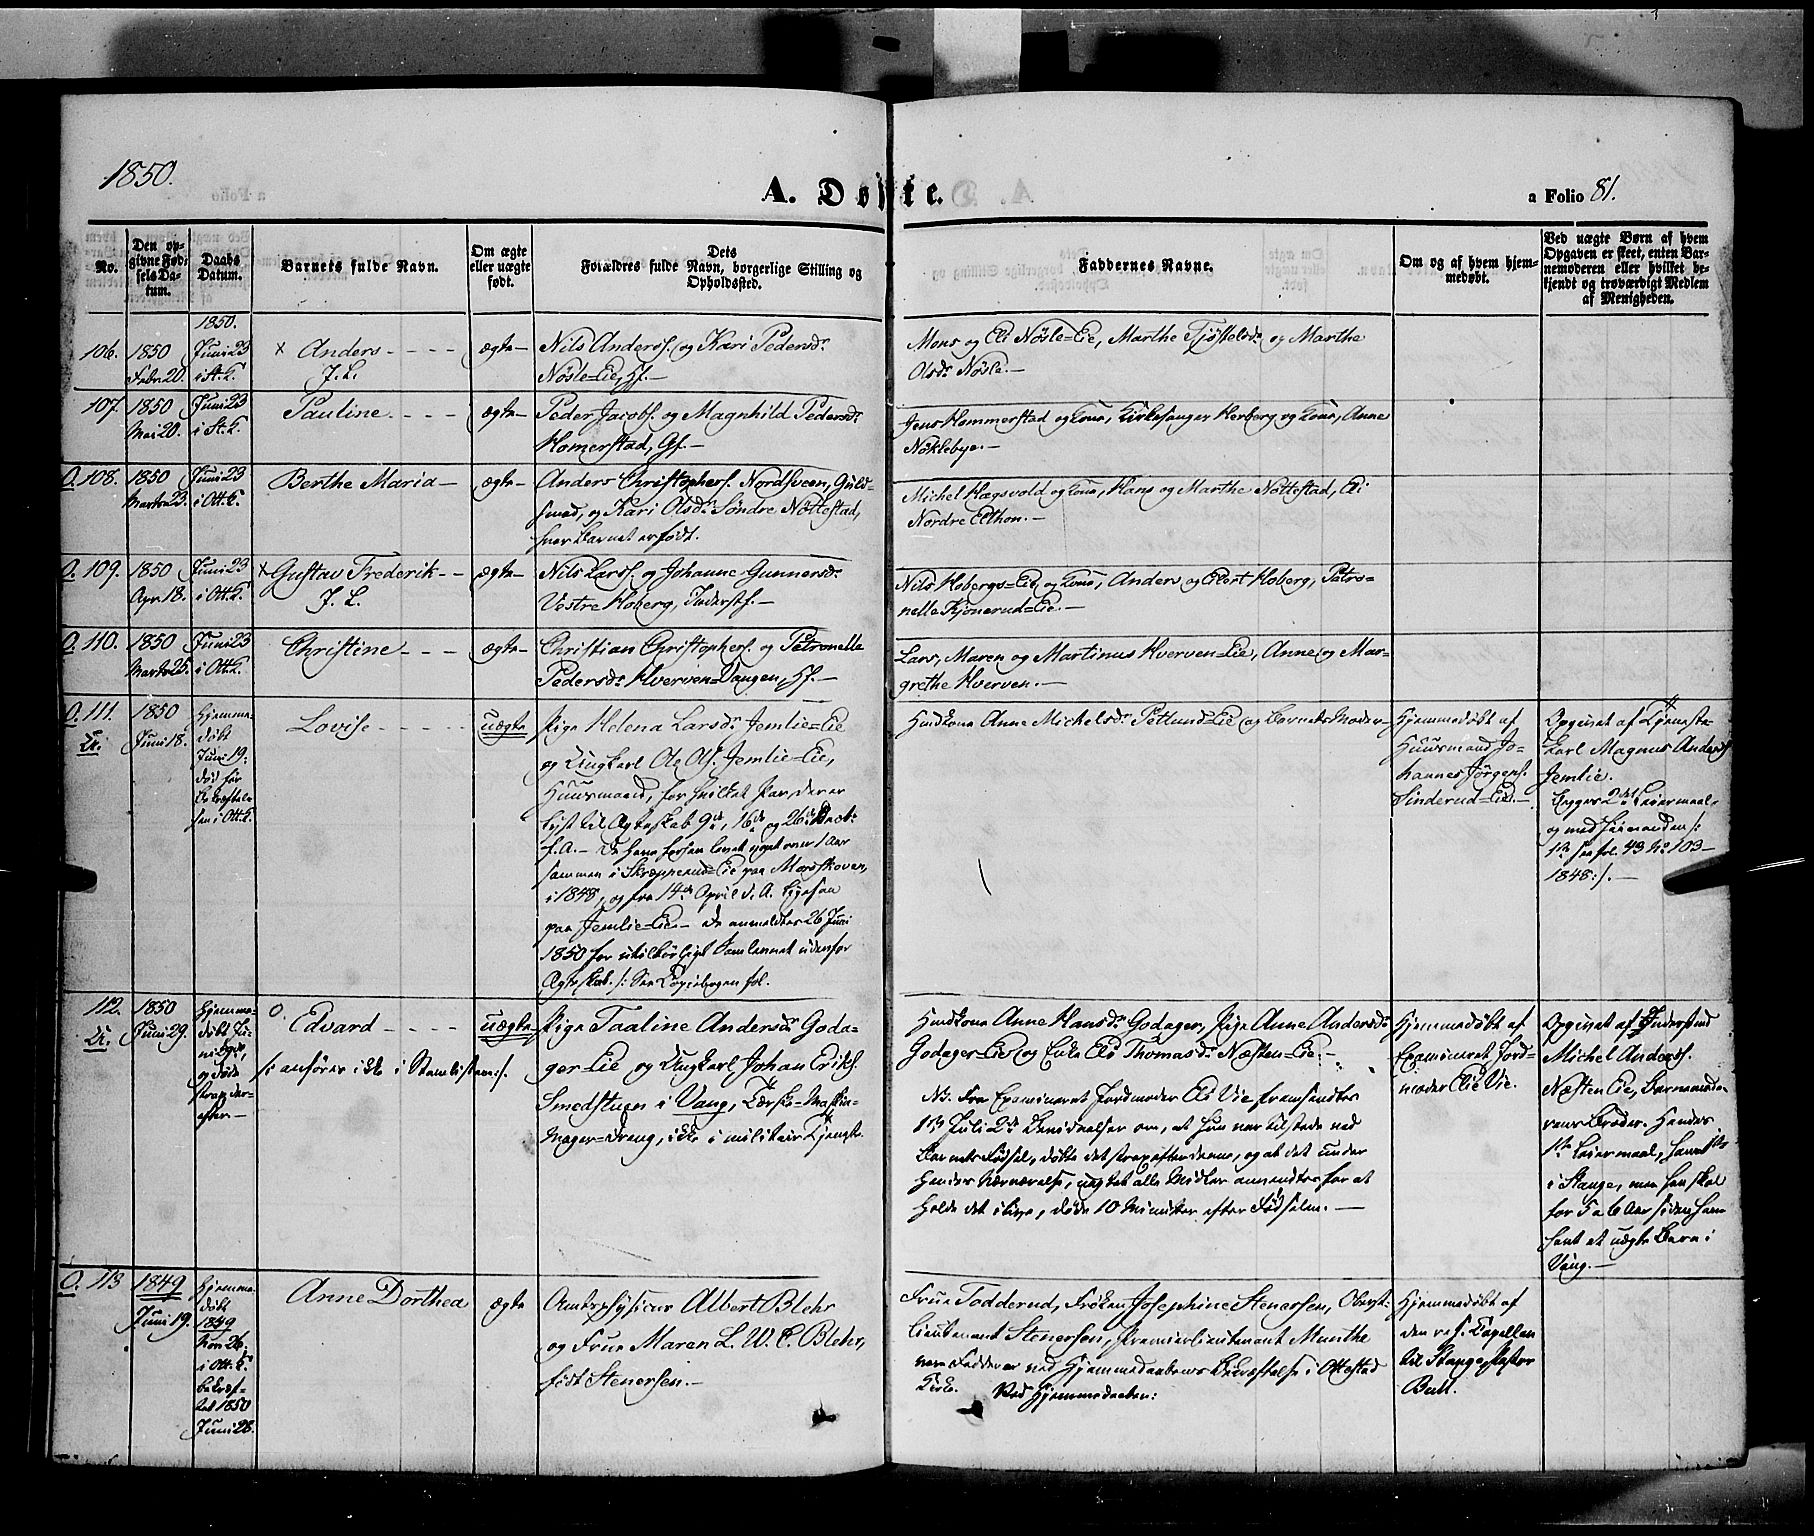 1850.
A. Døbte.
a Folio 81.
No.
Den op-
givne Fød-
sels Da-
tum.
Daabs
Datum.
Barnets fulde Navn.
Om ægte
eller uægte
født.
Dets
Forældres fulde Navn, borgerlige Stilling og
Opholdssted.
Faddernes Navne.
Om og af hvem hjem-
medøbt.
Ved uægte Børn af hvem
Opgaven er skeet, enten Bar-
nemoderen eller hvilket be-
kjendt og troværdigt Medlem
af Menigheden.
106.
1850
Febr. 20.
1850.
Juni 23
i St. K.
x Anders
J. L.
ægte
Nils Anders. og Kari Pedersd.
Nøsle=Eie, Hf.
Mons og Eli Nøsle=Eie, Marthe Tjøstelsd. og Marthe
Olsd. Nøsle.
107.
1850
Mai 20.
Juni 23
i St. K.
Pauline
ægte
Peder Jacobs. og Magnhild Pedersd.
Homerstad, Gf.
Jens Hommerstad og Kone, Kirkesanger Herberg og Kone, Anne
Nøklebye.
O. 108.
1850
Marts 23.
Juni 23
i Ott. K.
Berthe Maria
ægte
Anders Christophers. Nordsveen, Guld-
smed, og Kari Olsd. Søndre Nøttestad,
hvor Barnet er født.
Michel Hagsvold og Kone, Hans og Marthe Nøttestad, Eli
Nordre Elthon.
O. 109.
1850
Apr. 18.
Juni 23
i Ott. K.
x Gustav Frederik
J. L.
ægte
Nils Larss. og Johanne Gunnersd.
Vestre Hoberg, Inderstf.
Nils Hobergs=Eie og Kone, Anders og Elert Hoberg, Petro-
nelle Kjonerud=Eie.
O. 110.
1850
Marts 25.
Juni 23
i Ott. K.
Christine
ægte
Christian Christophers. og Petronelle
Pedersd. Hverven=Vangen, Hf.
Lars, Maren og Martinus Hverven=Eie, Anne og Mar-
grethe Hverven.
O. 111.
1850
Juni 18.
Hjemme-
døbt
Juni 19.
død før
Bekræftel-
sen i Ott. K.
Lovise
uægte
Pige Helena Larsd. Jemlie=Eie
og Ungkarl Ole Ols. Jemlie=Eie,
Huusmand, for hvilket Par der er
lyst til Ægteskab 9de, 16de og 26de
f. A. — De have forhen levet over 1 Aar
sammen i Skrepperud=Eie paa Mardskoven,
i 1848, og fra 14de April d. A. ligesaa
paa Jemlie=Eie. — De anmeldtes 26 Juni
1850 for utilbørligt Samlevnet udenfor
Ægteskab /: See Copiebogen fol.
Huskone Anne Michelsd. Petlund=Eie og Barnets Moder
Hjemmedøbt af
Huusmand Jo-
hannes Jørgens.
Sinderud=Eie.
Opgivet af Tjeneste-
karl Magnus Anders.
Jemlie.
Begges 2det Leiermaal
og med hinanden /:
1ste see fol. 43 No 103
1848:/.
112.
1850
Juni 29.
Hjemme-
døbt Ju-
ni 29de,
og døde
strax der-
efter
o. Edvard
/: anføres ikke i Stamlisten:/.
uægte
Pige Taaline Andersd. Goda-
ger=Eie og Ungkarl Johan Eriks.
Smedstuen i Vang, Tærske=Maskin-
Mager=Dreng, ikke i militair Tjeneste.
Huskone Anne Hansd. Godager, Pige Anne Andersd.
Godager=Eie og Enke Eli Thomasd. Næsten=Eie.
NB. Fra Examineret Jordmoder Eli Vie fremsendtes
1850 Juli 2de Bevidnelser om, at hun var tilstede ved
Barnets Fødsel, døbte det strax efter denne, og at det under
hendes Nærværelse, uagtet alle Midler anvendtes for at
holde det i live, døde 10 Minutter efter Fødselen.
Hjemmedøbt af
Examineret Jord-
moder Eli Vie.
Opgivet af Inderstmd
Michel Anders.
Næsten Eie, Barnemode-
rens Broder. Hendes
1ste Leiermaal, hans 1ste
i Stange, men han skal
for 5 a 6 Aar siden have
havt et uægte Barn i
Vang.
O. 113
1849
Juni 19.
Hjemme-
døbt
1849
Nov. 26.
i Ott. K.
bekræf-
tet 1850
Juni 28.
Anne Dorthea
ægte
Amtsphysicus Albert Blehr
og Frue Maren L. W. C. Blehr,
født Stenersen.
Frue Todderud, Frøken Josephine Stenersen, Oberst-
lieutenant Stenersen, Premierlieutenant Munthe
vare Faddere ved Hjemmedaabens Bekræftelse i Ottestad
Kirke. Ved Hjemmedaaben:
Hjemmedøbt af
den res. Capellan
til Stange, Pastor
Bull.